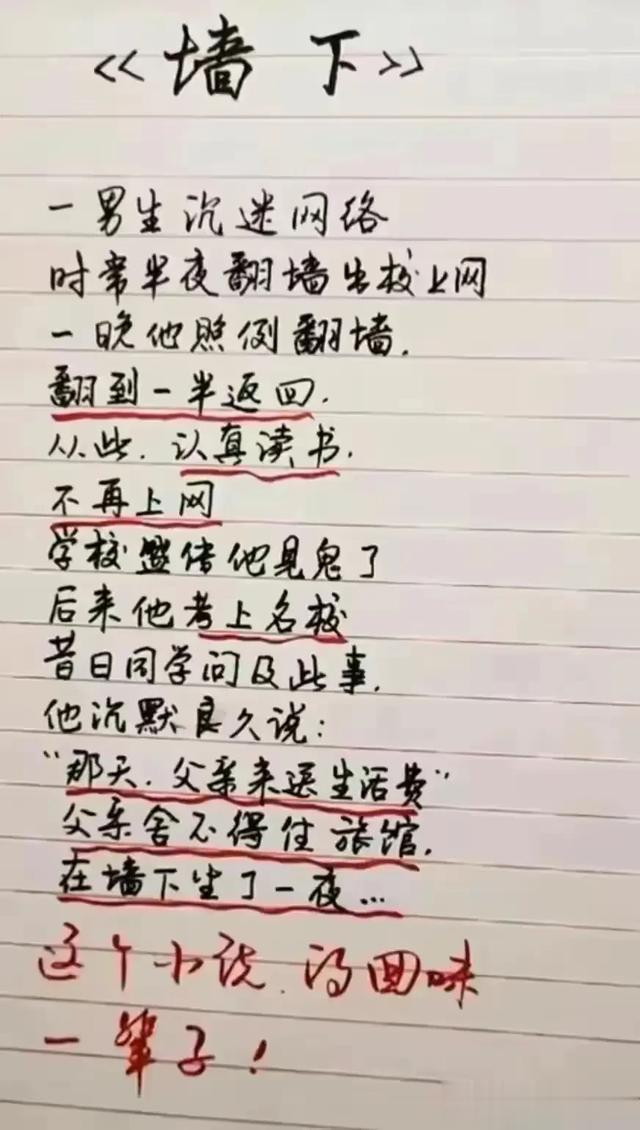 《墙下》
一男生沉迷网络
时常半夜翻墙出校上网
一晚他照例翻墙.
翻到一半返回.
从此.认真读书.
不再上网
学校盛传他见鬼了
后来他考上名校
昔日同学问及此事.
他沉默良久说:
"那天.父亲来送生活费"
父亲舍不得住旅馆.
在墙下坐了一夜...
这个小说.得回味
一辈子!